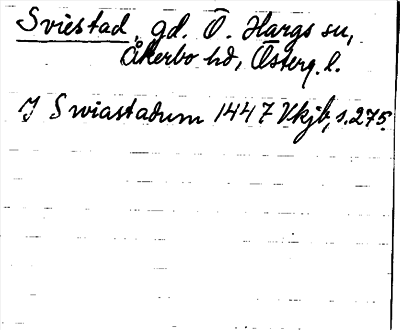 Sviestad, gd. Ö. Hargs sn,
Åkerbo hd, Österg. l.
J Swiastadum 1447 Vkjb, s. 275.